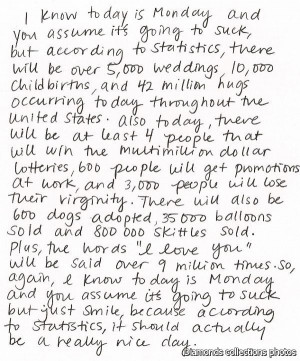 I know today is Monday and
you assume it's going to suck,
but according to statistics, there
will be over 5,000 weddings, 10,000
childbirths, and 42 million hugs
occurring today throughout the
united states. Also today, there
will be at least 4 people that
will win the multimillion dollar
lotteries, 600 people will get promotions
at work, and 3,000 people will lose
their virginity. There will also be
600 dogs adopted, 35000 balloons
sold and 800 000 skittles sold.
Plus, the words "I love you"
will be said over 9 million times. So,
again, I know today is Monday
and you assume it's going to suck
but just smile, because according
to statistics, it should actually
be a really nice day.
(diamonds collections photos